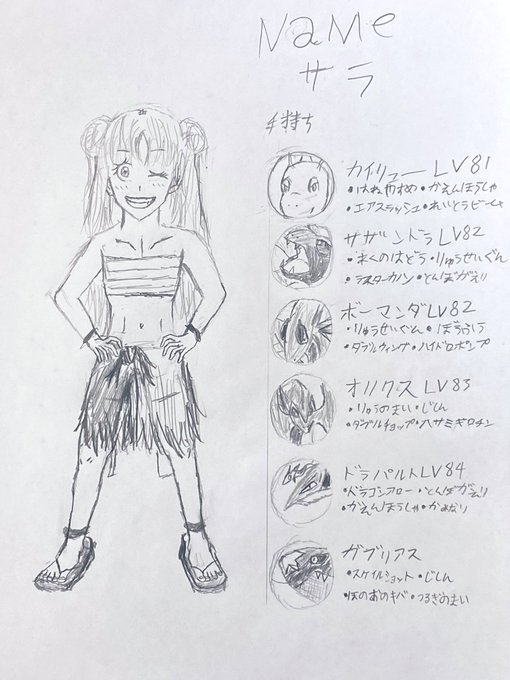 NaMe
サラ
手持ち
カイリュー LV81
・はねやすめ・かえんほうしゃ
・エアスラッシュ・れいとうビーム
サザンドラ LV82
・あくのはどう・りゅうせいぐん
・ラスターカノン・とんぼがえり
ボーマンダ LV82
・りゅうせいぐん・ぼうふう
・ダブルウィング・ハイドロポンプ
オノノクス LV83
・りゅうのまい・じしん
・ダブルチョップ・ハサミギロチン
ドラパルト LV84
・ドラゴンアロー・とんぼがえり
・かえんほうしゃ・かみなり
ガブリアス
・スケイルショット・じしん
・ほのおのキバ・つるぎのまい